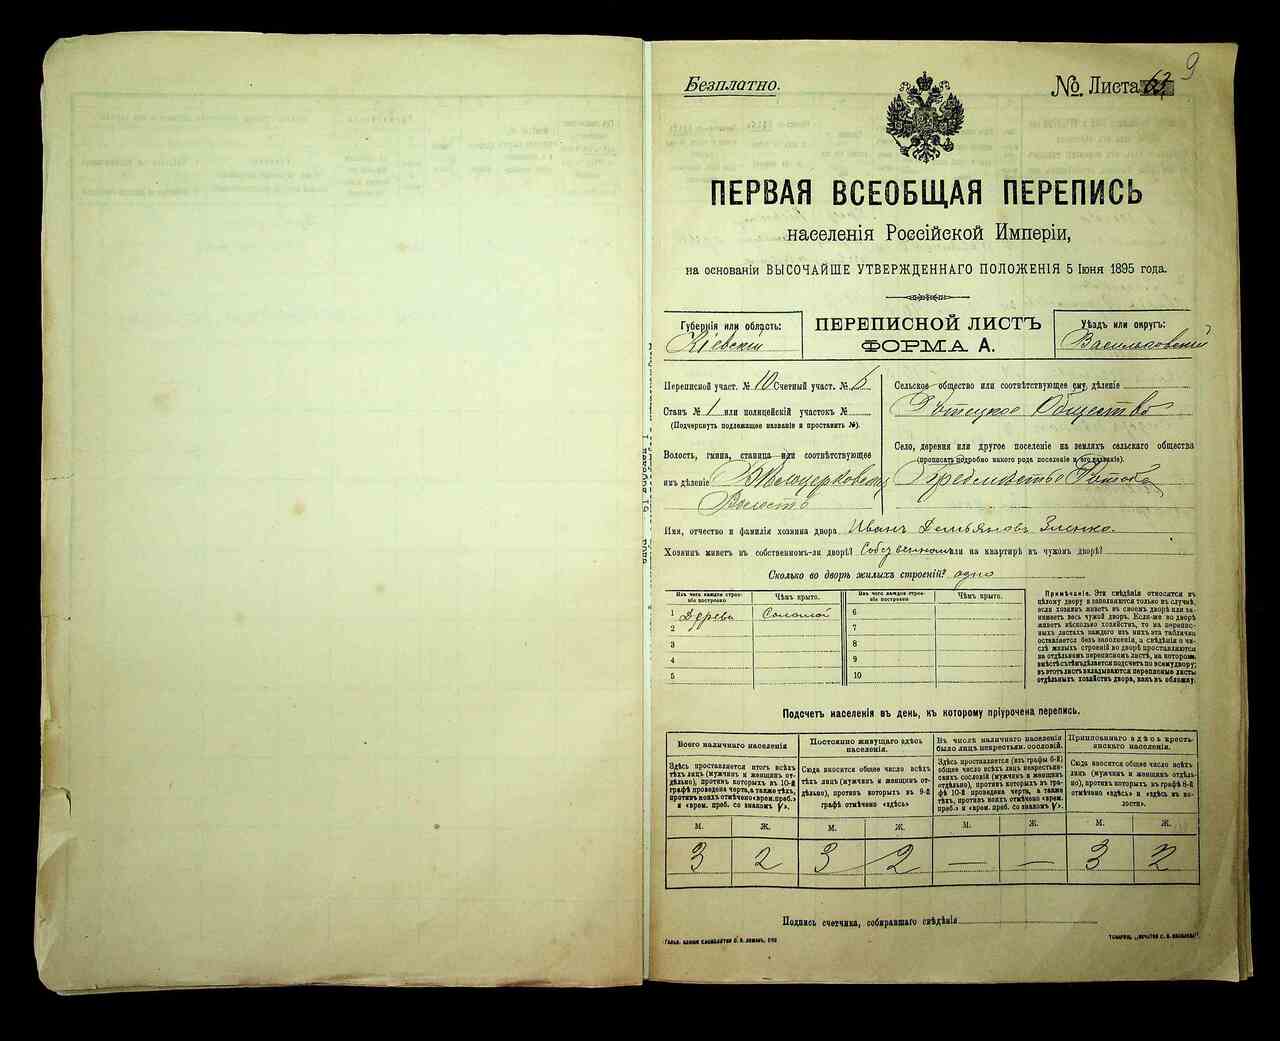 9
Безплатно.
№ Листа 63
ПЕРВАЯ ВСЕОБЩАЯ ПЕРЕПИСЬ
населенія Россійской Имперіи,
на основаніи ВЫСОЧАЙШЕ УТВЕРЖДЕННАГО ПОЛОЖЕНІЯ 5 Іюня 1895 года.
Губернія или область:
Кіевскій
ПЕРЕПИСНОЙ ЛИСТЪ
ФОРМА А.
Уѣздъ или округъ:
Васильковскій
Переписной участ. № 10 Счетный участ. № 6
Станъ № 1 или полицейскій участокъ №
(Подчеркнуть подлежащее названіе и проставить №).
Волость, гмина, станица или соотвѣтствующее
имъ дѣленіе Бѣлоцерковская
Волость
Сельское общество или соотвѣтствующее ему дѣленіе
Ротокское Общество
Село, деревня или другое поселеніе на земляхъ сельскаго общества
(прописать подробно какого рода поселеніе и его названіе).
Предмѣстье Ротокъ
Имя, отчество и фамилія хозяина двора Иванъ Демьяновъ Зленко.
Хозяинъ живетъ въ собственномъ-ли дворѣ? Собственномъ или на квартирѣ въ чужомъ дворѣ?
Сколько во дворѣ жилыхъ строеній? одно
Изъ чего каждое строе-
ніе построено
Чѣмъ крыто.
Изъ чего каждое строе-
ніе построено
Чѣмъ крыто.
1 Дерева Соломой 6
2 7
3 8
4 9
5 10
Примѣчаніе. Эти свѣдѣнія относятся къ
цѣлому двору и заполняются только въ случаѣ,
если хозяинъ живетъ въ своемъ дворѣ или за-
нимаетъ весь чужой дворъ. Если-же во дворѣ
живетъ нѣсколько хозяйствъ, то на перепис-
ныхъ листахъ каждаго изъ нихъ эта табличка
оставляется безъ заполненія, а свѣдѣнія о чи-
слѣ жилыхъ строеній во дворѣ проставляются
на отдѣльномъ переписномъ листѣ, на которомъ
вмѣстѣ съ тѣмъ дѣлается подсчетъ по всему двору;
въ этотъ листъ вкладываются переписные листы
отдѣльныхъ хозяйствъ двора, какъ въ обложку.
Подсчетъ населенія въ день, къ которому пріурочена перепись.
Всего наличнаго населенія
Здѣсь проставляется итогъ всѣхъ
тѣхъ лицъ (мужчинъ и женщинъ от-
дѣльно), противъ которыхъ въ 10-й
графѣ проведена черта, а также тѣхъ,
противъ коихъ отмѣчено «врем. преб.»
и «врем. преб. со знакомъ V».
Постоянно живущаго здѣсь
населенія.
Сюда вносится общее число всѣхъ
тѣхъ лицъ (мужчинъ и женщинъ от-
дѣльно), противъ которыхъ въ 9-й
графѣ отмѣчено «здѣсь»
Въ числѣ наличнаго населенія
было лицъ некрестьян. сословій.
Здѣсь проставляется (изъ графы 6-й)
общее число всѣхъ лицъ некрестьян-
скихъ сословій (мужчинъ и женщинъ
отдѣльно), противъ которыхъ въ
графѣ 10-й проведена черта, а также
тѣхъ, противъ коихъ отмѣчено «врем.
преб.» и «врем. преб. со знакомъ V».
Приписаннаго здѣсь кресть-
янскаго населенія.
Сюда вносится общее число всѣхъ
лицъ (мужчинъ и женщинъ отдѣль-
но), противъ которыхъ въ графѣ 8-й
отмѣчено «здѣсь» и «здѣсь въ во-
лости».
М. Ж. М. Ж. М. Ж. М. Ж.
3 2 3 2 — — 3 2
Подпись счетчика, собиравшаго свѣдѣнія